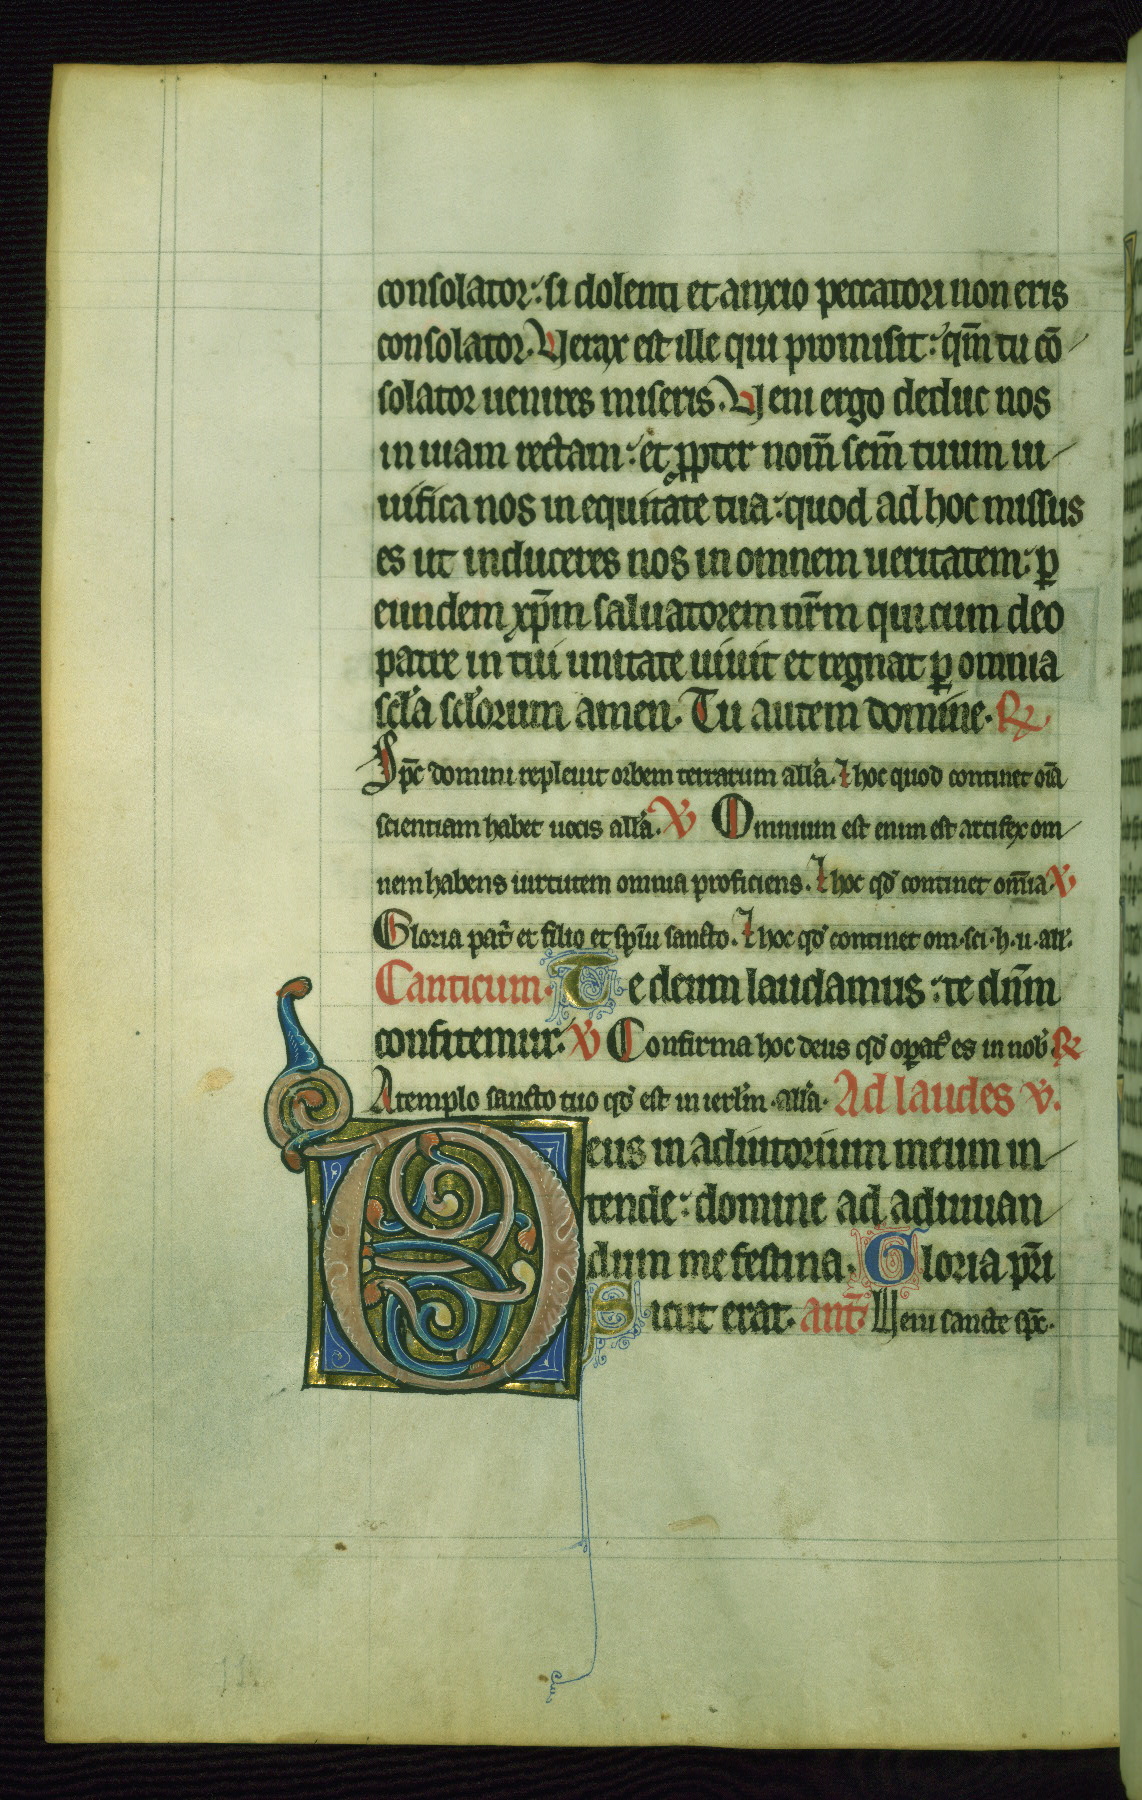 consolator: si dolenti et anxio peccatori non eris
consolator. Verax est ille qui promisit: qm̄ tu cō
solator uenires miseris. Veni ergo deduc nos
in uiam rectam: et ꝓpter nom̄ scm̄ tuum ui
uifica nos in equitate tua: quod ad hoc missus
es ut induceres nos in omnem ueritatem. ꝑ
eundem xp̄m saluatorem nr̄m qui cum deo
patre in tui unitate uiuit et regnat ꝑ omnia
scl̄a scl̄orum amen. Tu autem domine. ℟
Spc̄ domini repleuit orbem terrarum all̄a. ⁊ hoc quod continet oīa
scientiam habet uocis all̄a. ℣ Omnium est enim est artifex om
nem habens uirtutem omnia proficiens. ⁊ hoc qd̄ continet om̄ia. ℣
Gloria pat̄ et filio et sp̄iu sancto. ⁊ hoc qd̄ continet om. sci. h. u. all̄.
Canticum. Te deum laudamus: te dn̄m
confitemur. ℣ Confirma hoc deus qd̄ oꝑat᷒ es in nob᷒ ℟
A templo sancto tuo qd̄ est in ierl̄m. all̄a. Ad laudes ℣.
Deus in adiutorium meum in
tende: domine ad adiuuan
dum me festina. Gloria pr̄i
Sicut erat. ant̄. Veni sancte spc̄.